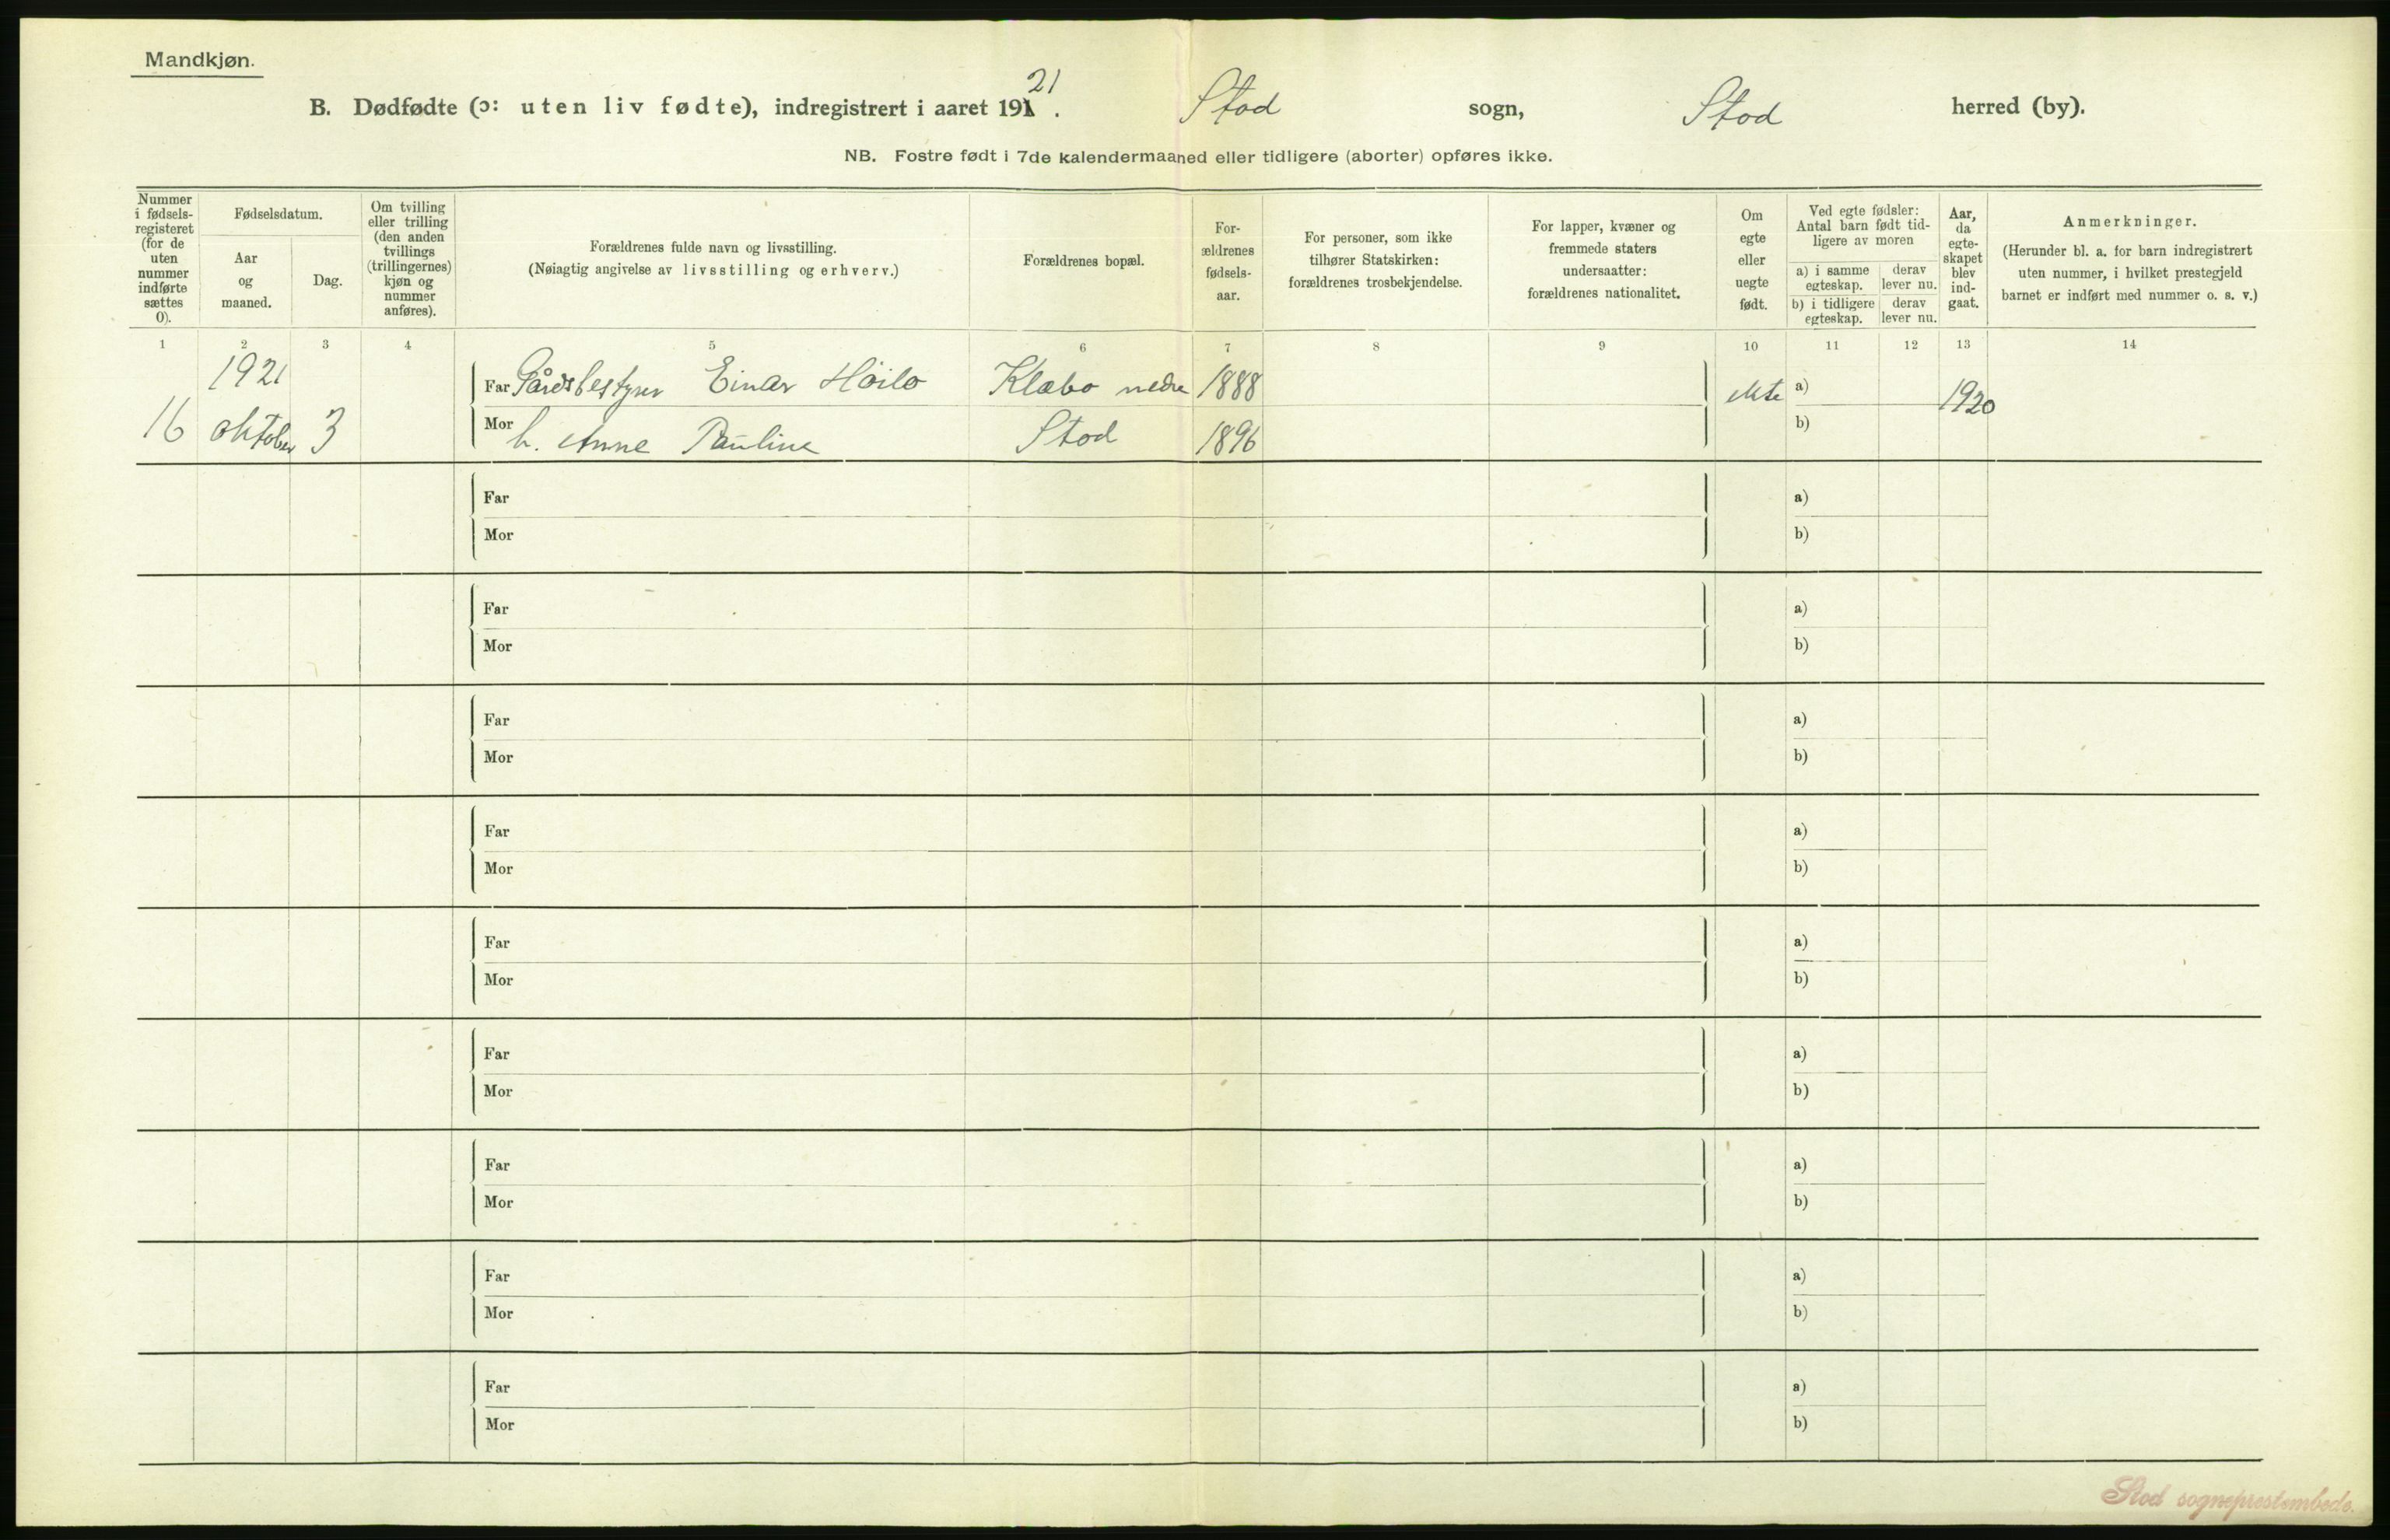 Mandkjøn.
B. Dødfødte (ɔ: uten liv fødte), indregistrert i aaret 1921. Stod sogn, Stod herred (by).
NB. Fostre født i 7de kalendermaaned eller tidligere (aborter) opføres ikke.
Nummer i fødsels-registeret (for de uten nummer indførte sættes 0).
Fødselsdatum.
Aar og maaned.
Dag.
Om tvilling eller trilling (den anden tvillings (trillingernes) kjøn og nummer anføres).
Forældrenes fulde navn og livsstilling.
(Nøiagtig angivelse av livsstilling og erhverv.)
Forældrenes bopæl.
For-ældrenes fødsels-aar.
For personer, som ikke tilhører Statskirken: forældrenes trosbekjendelse.
For lapper, kvæner og fremmede staters undersaatter: forældrenes nationalitet.
Om egte eller uegte født.
Ved egte fødsler: Antal barn født tid-ligere av moren
a) i samme egteskap.
derav lever nu.
b) i tidligere egteskap.
derav lever nu.
Aar, da egte-skapet blev ind-gaat.
Anmerkninger.
(Herunder bl. a. for barn indregistrert uten nummer, i hvilket prestegjeld barnet er indført med nummer o. s. v.)
1 2 3 4 5 6 7 8 9 10 11 12 13 14
1921 Far Gårdsbestyrer Einar Höilo Klæbo nedre 1888 ekte a) 1920
16 oktober 3 Mor h. Anne Pauline Stod 1896 b)
Far a)
Mor b)
Far a)
Mor b)
Far a)
Mor b)
Far a)
Mor b)
Far a)
Mor b)
Far a)
Mor b)
Far a)
Mor b)
Far a)
Mor b)
Far a)
Mor b)
Stod sogneprestembede.